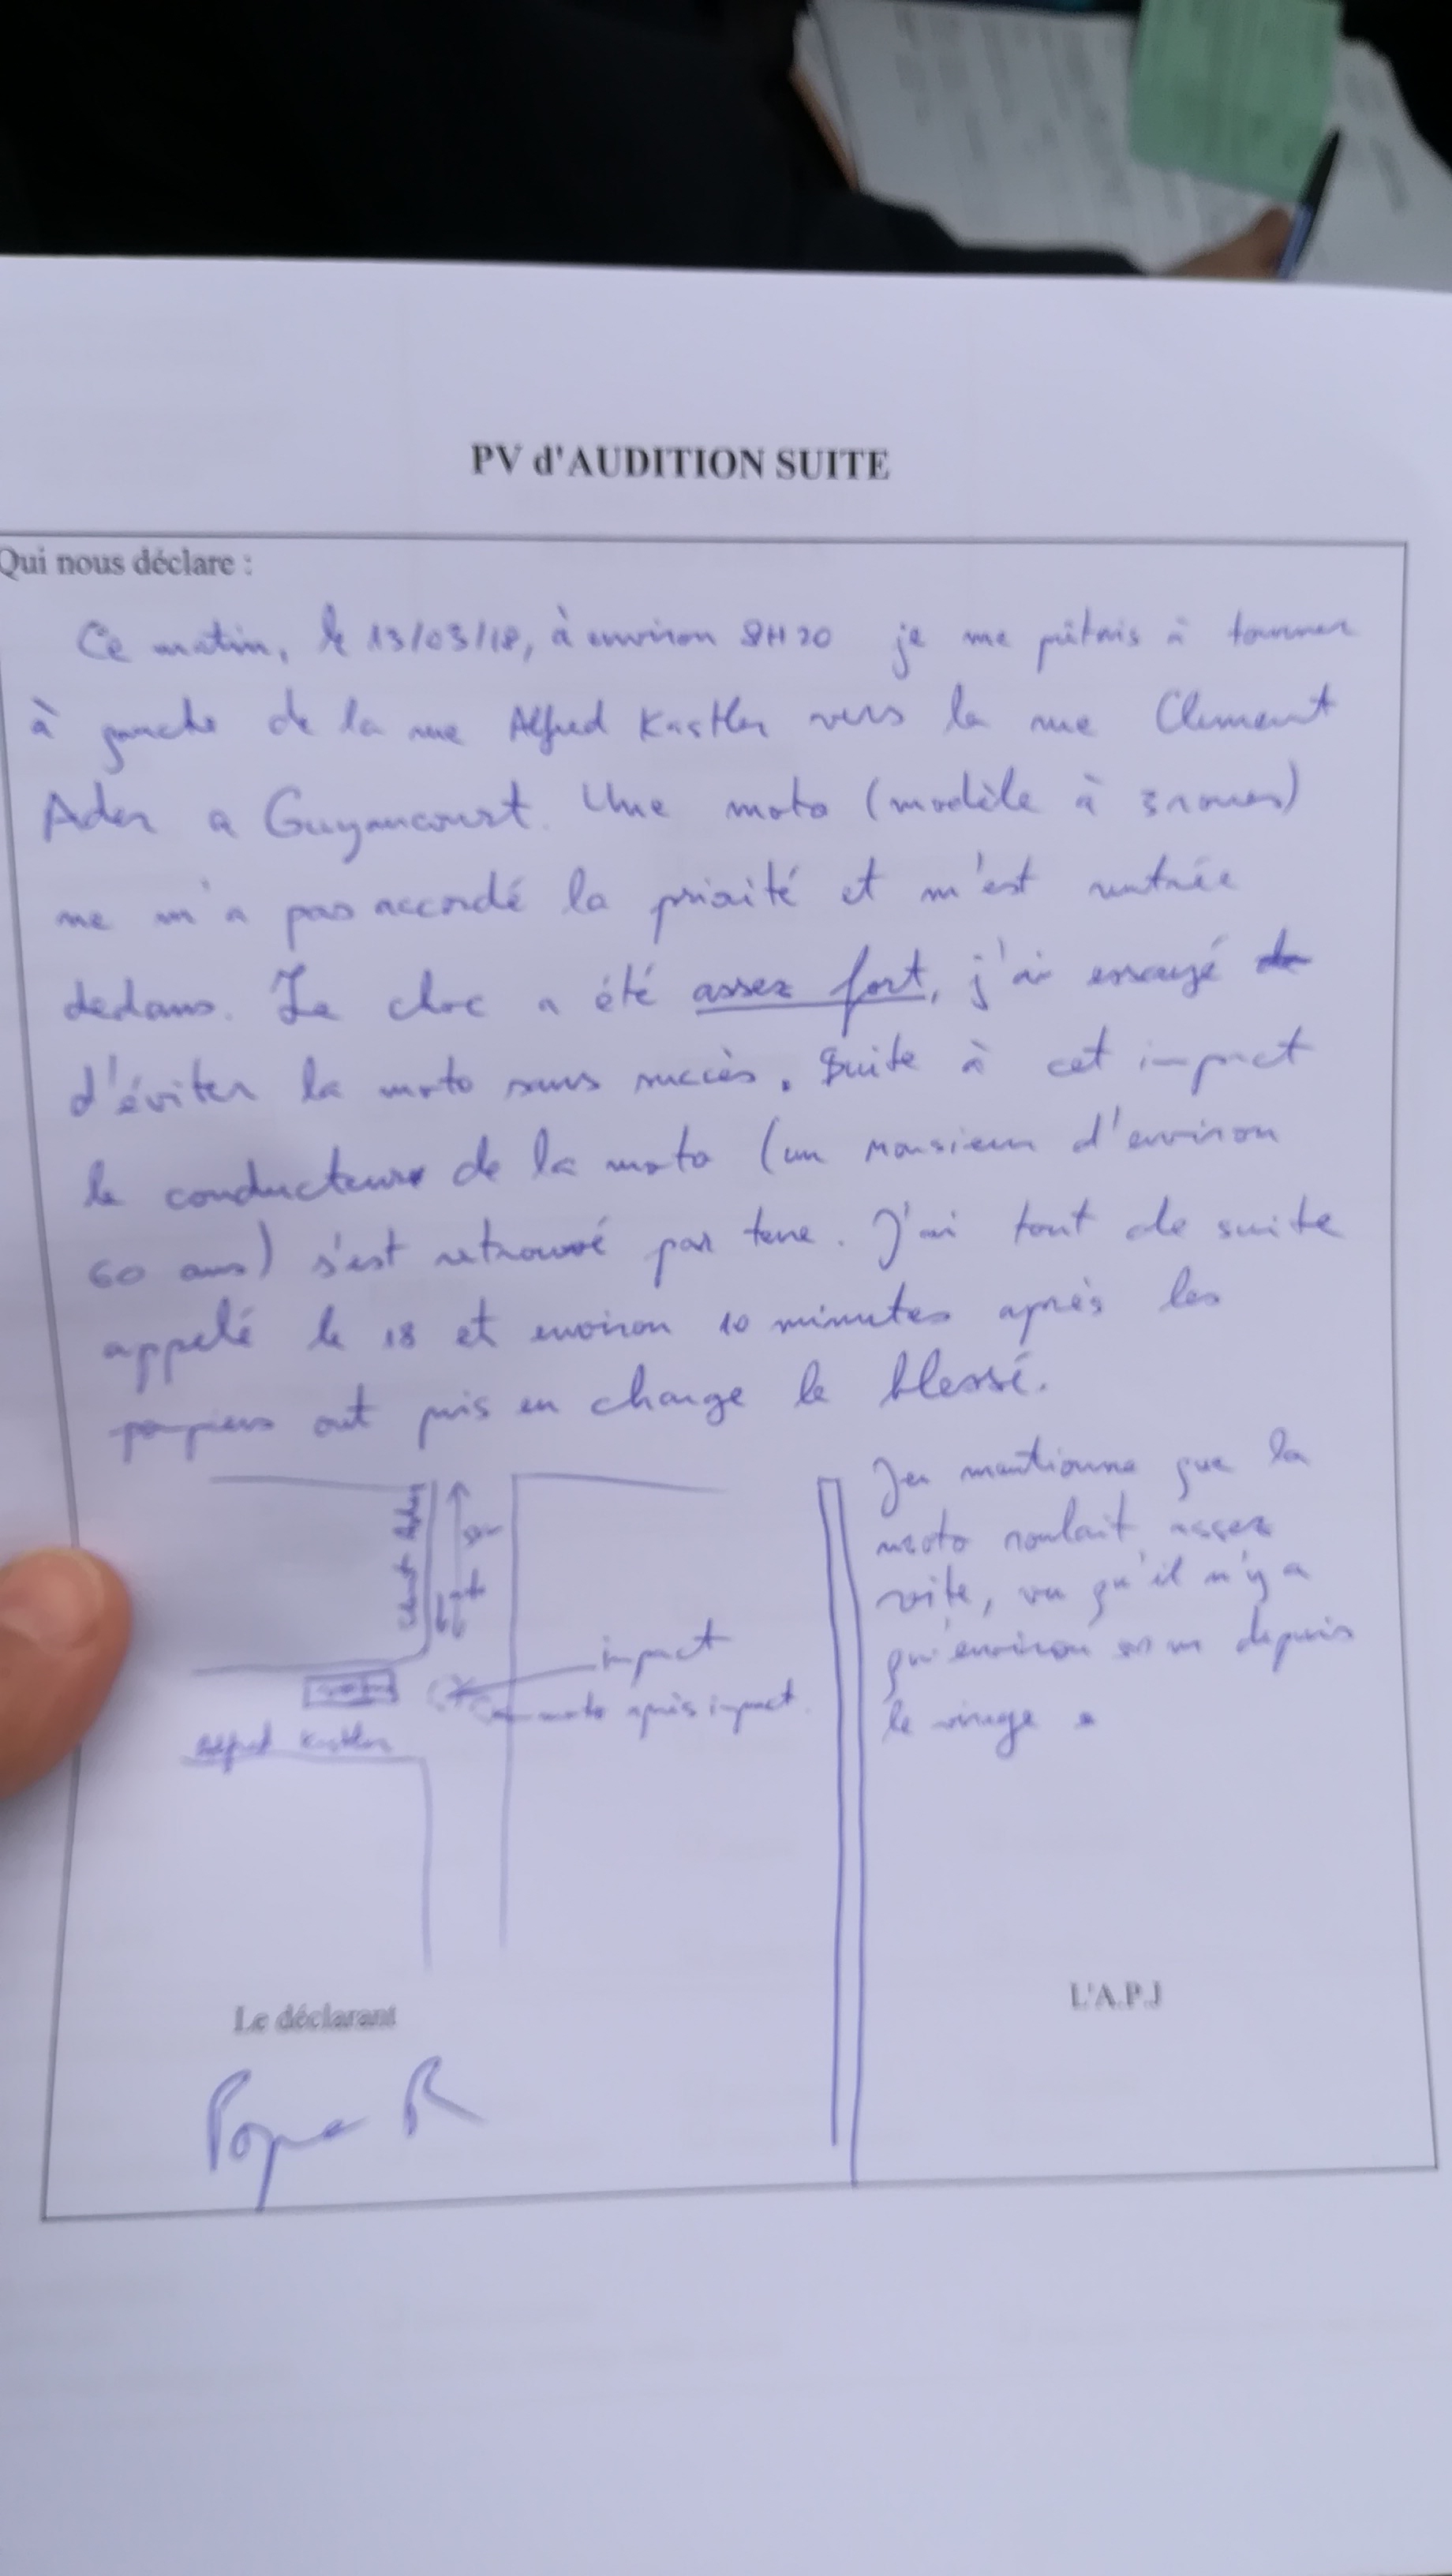 PV d'AUDITION SUITE
Qui nous déclare :
Ce matin, le 13/03/18, à environ 8H20 je me prêtais à tourner
à gauche de la rue Alfred Kastler vers la rue Clement
Ader a Guyancourt. Une moto (modèle à 3 roues)
ne m'a pas accordé la priorité et m'est rentrée
dedans. Le choc a été assez fort, j'ai essayé
d'éviter la moto sans succès. Suite à cet impact
le conducteur de la moto (un monsieur d'environ
60 ans) s'est retrouvé par terre. J'ai tout de suite
appelé le 18 et environ 10 minutes après les
pompiers ont pris en charge le blessé.
Clement Ader
impact
moto après impact
Alfred Kastler
Je mentionne que la
moto roulait assez
vite, vu qu'il n'y a
qu'environ m depuis
le virage
Le déclarant
L'A.P.J
Popa R